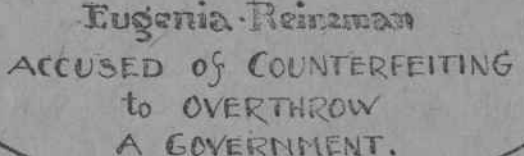 Eugenia Reinzman
ACCUSED of COUNTERFEITING
to OVERTHROW
A GOVERNMENT.